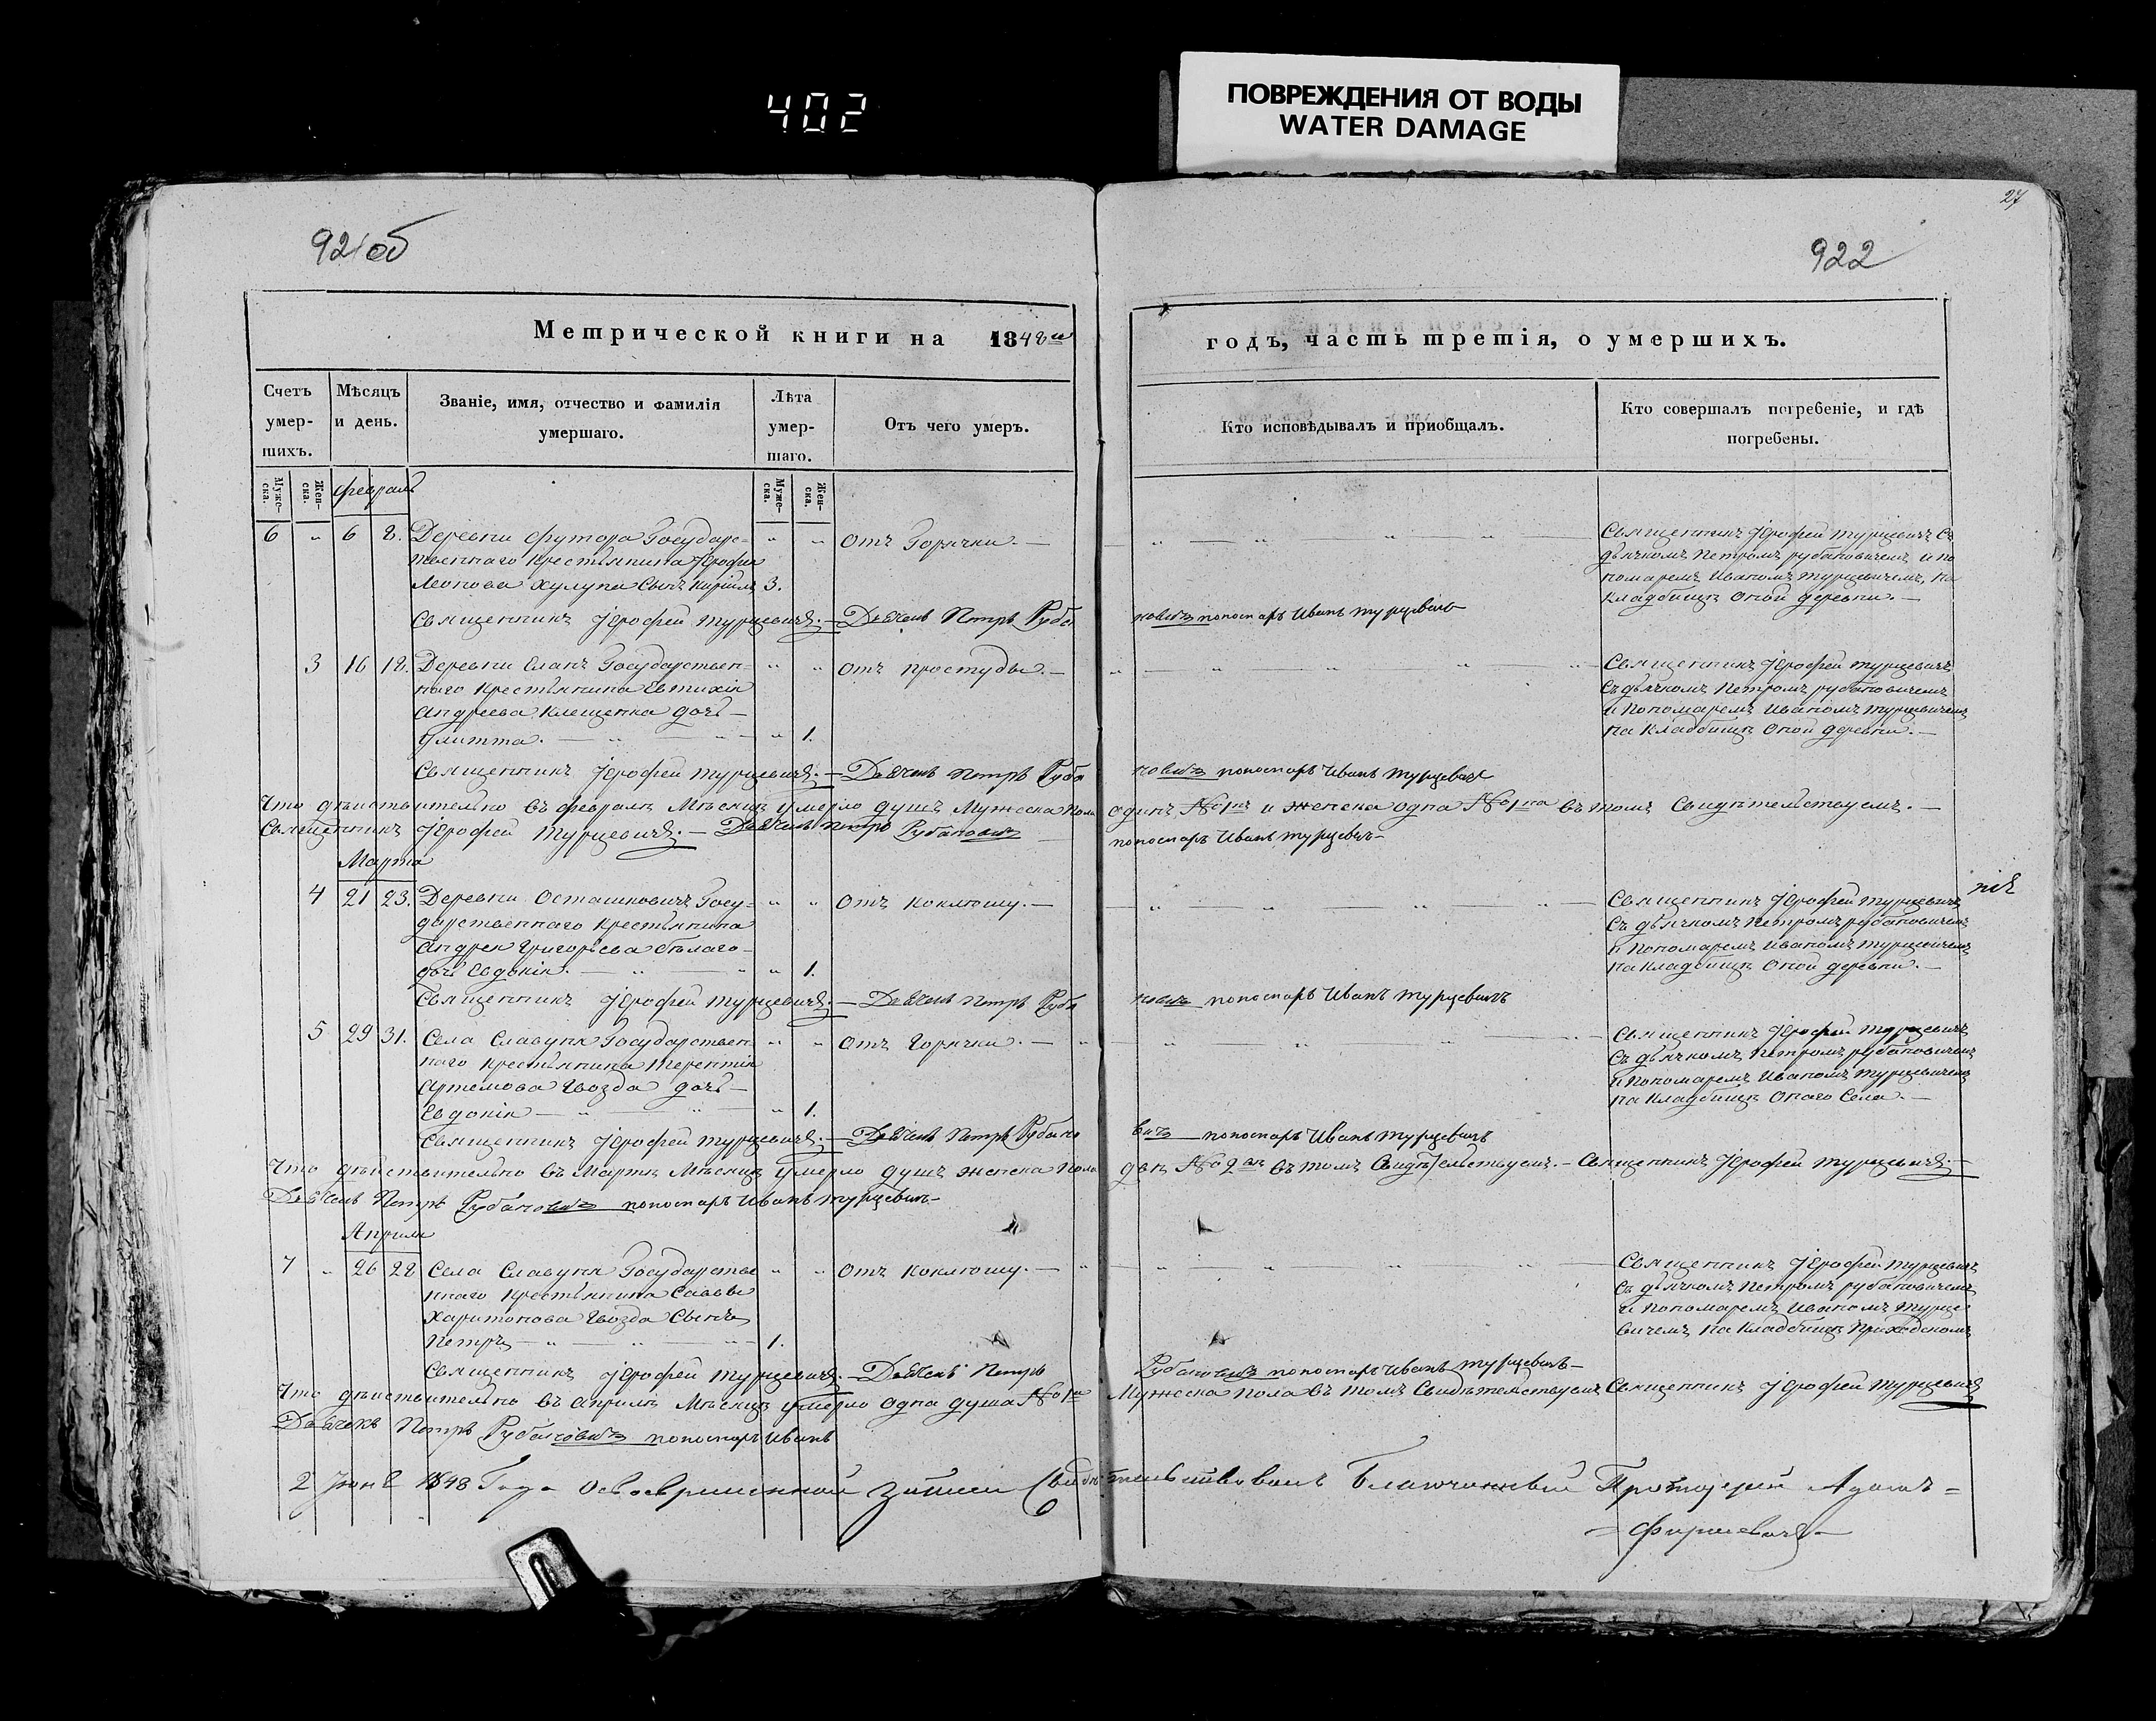 402
ПОВРЕЖДЕНИЯ ОТ ВОДЫ
WATER DAMAGE
27
921об
922
Метрической книги на 1848й
годъ, часть третія, о умершихъ.
Счетъ умер-шихъ.
Мѣсяцъ и день.
Званіе, имя, отчество и фамилія умершаго.
Лѣта умер-шаго.
Отъ чего умеръ.
Кто исповѣдывалъ и приобщалъ.
Кто совершалъ погребеніе, и гдѣ погребены.
Муже-ска.
Жен-ска.
Муже-ска.
Жен-ска.
Февраль
6 " 6 8. Деревни Футора Государс= " " Отъ Горячки. —
твеннаго Крестьянина Іерофея
Леонова Хулупа Сынъ Кирилъ 3.
Священникъ Іерофей Турцевичъ Съ
дьячкомъ Петромъ Рубановичемъ и по
номаремъ Иваномъ Турцевичемъ, на
Кладбищѣ Оной деревни. —
Священникъ Іерофей Турцевичъ. — Дьячекъ Петръ Руба
новичъ пономарь Иванъ Турцевичъ
3 16 18. Деревни Еланъ Государствен= " " Отъ простуды. —
наго Крестьянина Евтихія
Андреева Клещенка дочь —
Улитта. — " — " 1.
Священникъ Іерофей Турцевичъ
Съ дьячкомъ Петромъ Рубановичемъ
и Пономаремъ Иваномъ Турцевичемъ
на Кладбищѣ Оной деревни. —
Священникъ Іерофей Турцевичъ. — Дьячекъ Петръ Руба
новичъ пономарь Иванъ Турцевичъ
Что дѣйствительно въ февралѣ Мѣсяцѣ умерло душъ Мужеска пола одинъ №1нъ и женска одна №1на въ томъ Свидѣтельствуемъ. —
Священникъ Іерофей Турцевичъ. — Дьячекъ Петръ Рубановичъ пономарь Иванъ Турцевичъ —
Марта
4 21 23. Деревни Осташковичъ Госу= " " Отъ Коклюшу. —
дарственнаго Крестьянина
Андрея Григорьева Бѣлаго —
дочь Евдокія. — " — " 1.
Священникъ Іерофей Турцевичъ
Съ дьячкомъ Петромъ Рубановичемъ
и Пономаремъ Иваномъ Турцевичемъ
на Кладбищѣ Оной деревни. —
Священникъ Іерофей Турцевичъ. — Дьячекъ Петръ Руба
новичъ пономарь Иванъ Турцевичъ
5 29 31. Села Славуня Государствен " " Отъ Горячки. —
наго Крестьянина Терентія
Артемова Гвозда дочь —
Евдокія — " — " 1.
Священникъ Іерофей Турцевичъ
Съ дьячкомъ Петромъ Рубановичемъ
и Пономаремъ Иваномъ Турцевичемъ
на Кладбищѣ Онаго Села. —
Священникъ Іерофей Турцевичъ. — Дьячекъ Петръ Рубано
вичъ пономарь Иванъ Турцевичъ
Что дѣйствительно въ Мартѣ Мѣсяцѣ умерло душъ женска пола двѣ №2вѣ въ томъ Свидѣтельствуемъ. — Священникъ Іерофей Турцевичъ. —
Дьячекъ Петръ Рубановичъ пономарь Иванъ Турцевичъ —
Апрѣля
7 " 26 28 Села Славуня Государстве " " Отъ Коклюшу. —
ннаго Крестьянина Саввы
Харитонова Гвозда Сынъ
Петръ — " — " 1.
Священникъ Іерофей Турцевичъ
Съ дьячкомъ Петромъ Рубановичемъ
и Пономаремъ Иваномъ Турце
вичемъ на Кладбищѣ Приходскомъ
Священникъ Іерофей Турцевичъ. — Дьячекъ Петръ
Рубановичъ пономарь Иванъ Турцевичъ —
Что дѣйствительно въ Апрѣлѣ Мѣсяцѣ умерло одна душа №1а Мужеска пола въ томъ Свидѣтельствуемъ Священникъ Іерофей Турцевичъ
Дьячекъ Петръ Рубановичъ пономарь Иванъ
2 Іюня 1848 Года Благочинный Протоіерей